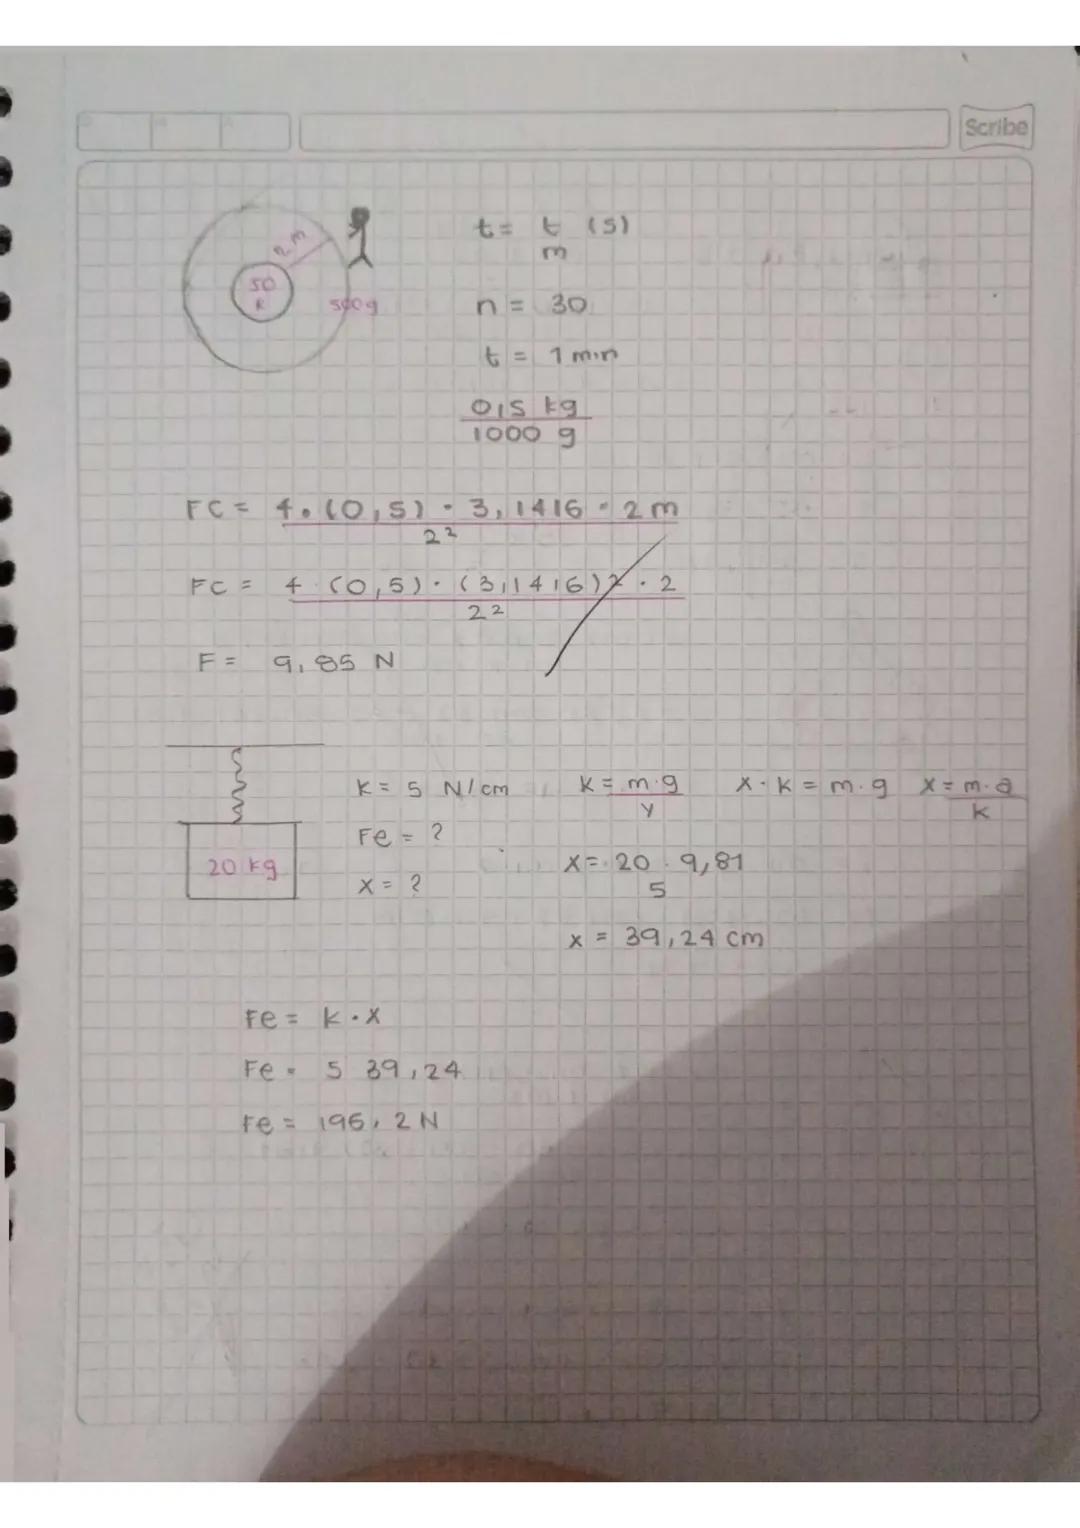 Scribe
2 m
50
R
500g
t = t (s)
m
n = 30
t = 1 min
0,5 kg
1000 g
FC = 4 . (0,5) . 3,1416 . 2 m
2²
FC = 4 . (0,5) . (3,1416)2 . 2
2²
F = 9,85 N
20 kg
K = 5 N/cm
Fe = ?
x = ?
K = m.g
y
x . K = m.g
x = m.g
K
x = 20 . 9,81
5
x = 39,24 cm
Fe = K . x
Fe = 5 39,24
Fe = 196,2 N